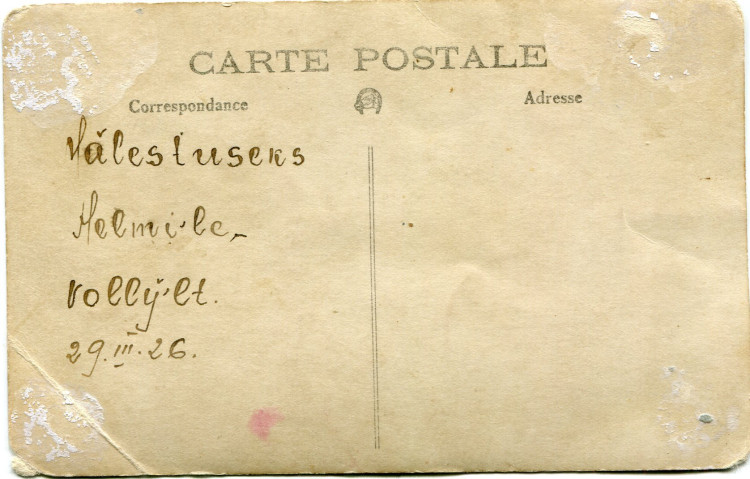 CARTE POSTALE
Correspondance
Adresse
Mälestuseks
Helmi'le,
Volly'lt.
29.III.26.